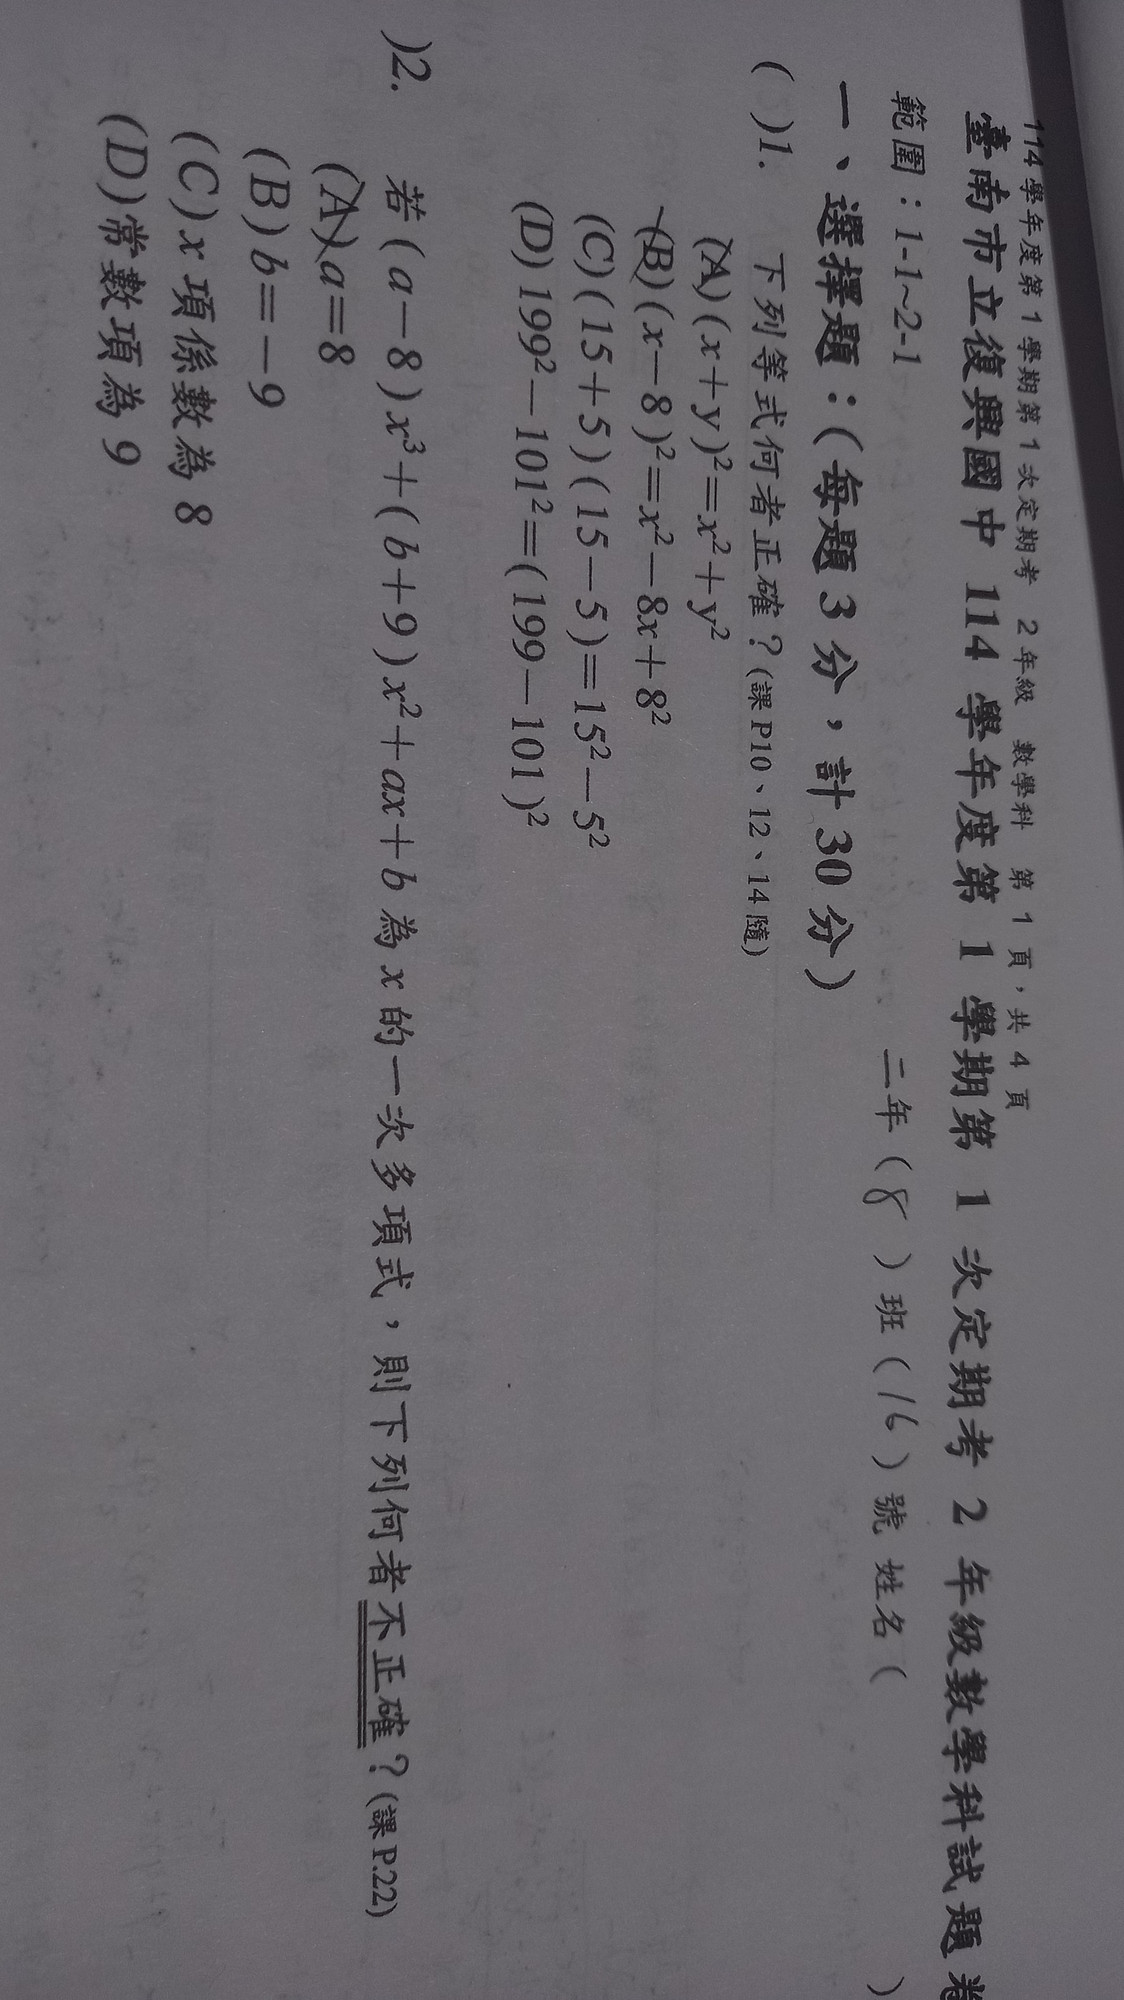 114 學年度第 1 學期第 1 次定期考 2 年級 數學科 第 1 頁，共 4 頁
臺南市立復興國中 114 學年度第 1 學期第 1 次定期考 2 年級數學科試題卷
範圍：1-1~2-1 二年（8）班（16）號 姓名（ ）
一、選擇題：（每題 3 分，計 30 分）
( )1. 下列等式何者正確？(課 P10、12、14 隨)
(A)(x+y)²=x²+y²
(B)(x－8)²=x²－8x+8²
(C)(15+5)(15－5)=15²－5²
(D)199²－101²=(199－101)²
)2. 若(a－8)x³+(b+9)x²+ax+b 為 x 的一次多項式，則下列何者不正確？(課 P.22)
(A)a=8
(B)b=－9
(C)x 項係數為 8
(D)常數項為 9